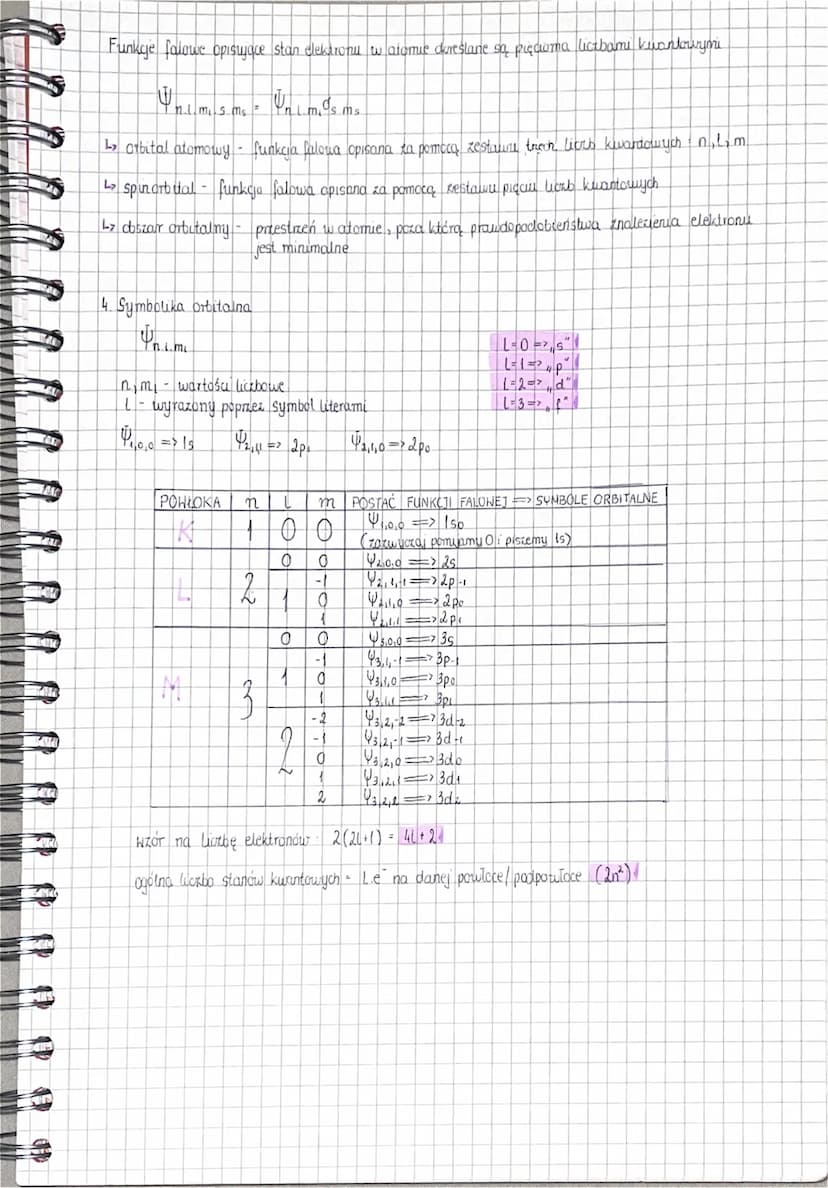 Funkcje falowe opisujące stan elektronu w atomie określane są pięcioma liczbami kwantowymi
Ψn.l.ml.s.ms = Ψn.l.ml σs.ms
↳ orbital atomowy - funkcja falowa opisana za pomocą zestawu trzech liczb kwantowych: n, l, m
↳ spinorbital - funkcja falowa opisana za pomocą zestawu pięciu liczb kwantowych
↳ obszar orbitalny - przestrzeń w atomie, poza którą prawdopodobieństwa znalezienia elektronu
jest minimalne
4. Symbolika orbitalna
Ψn.l.ml
L=0 => „s"
L=1 => „p"
L=2 => „d"
L=3 => „f"
n, ml - wartości liczbowe
l - wyrażony poprzez symbol literami
Ψ1,0,0 => 1s Ψ2,1,1 => 2p1 Ψ2,1,0 => 2p0
POWŁOKA n l m POSTAĆ FUNKCJI FALOWEJ => SYMBOLE ORBITALNE
K 1 0 0 Ψ1,0,0 => 1s0
(zazwyczaj pomijamy 0 i piszemy 1s)
0 0 Ψ2,0,0 => 2s
-1 Ψ2,1,-1 => 2p-1
L 2 1 0 Ψ2,1,0 => 2p0
1 Ψ2,1,1 => 2p1
0 0 Ψ3,0,0 => 3s
-1 Ψ3,1,-1 => 3p-1
M 3 1 0 Ψ3,1,0 => 3p0
1 Ψ3,1,1 => 3p1
-2 Ψ3,2,-2 => 3d-2
-1 Ψ3,2,-1 => 3d-1
2 0 Ψ3,2,0 => 3d0
1 Ψ3,2,1 => 3d1
2 Ψ3,2,2 => 3d2
wzór na liczbę elektronów: 2(2l+1) = 4l+2
ogólna liczba stanów kwantowych = l.e⁻ na danej powłoce/podpowłoce (2n²)